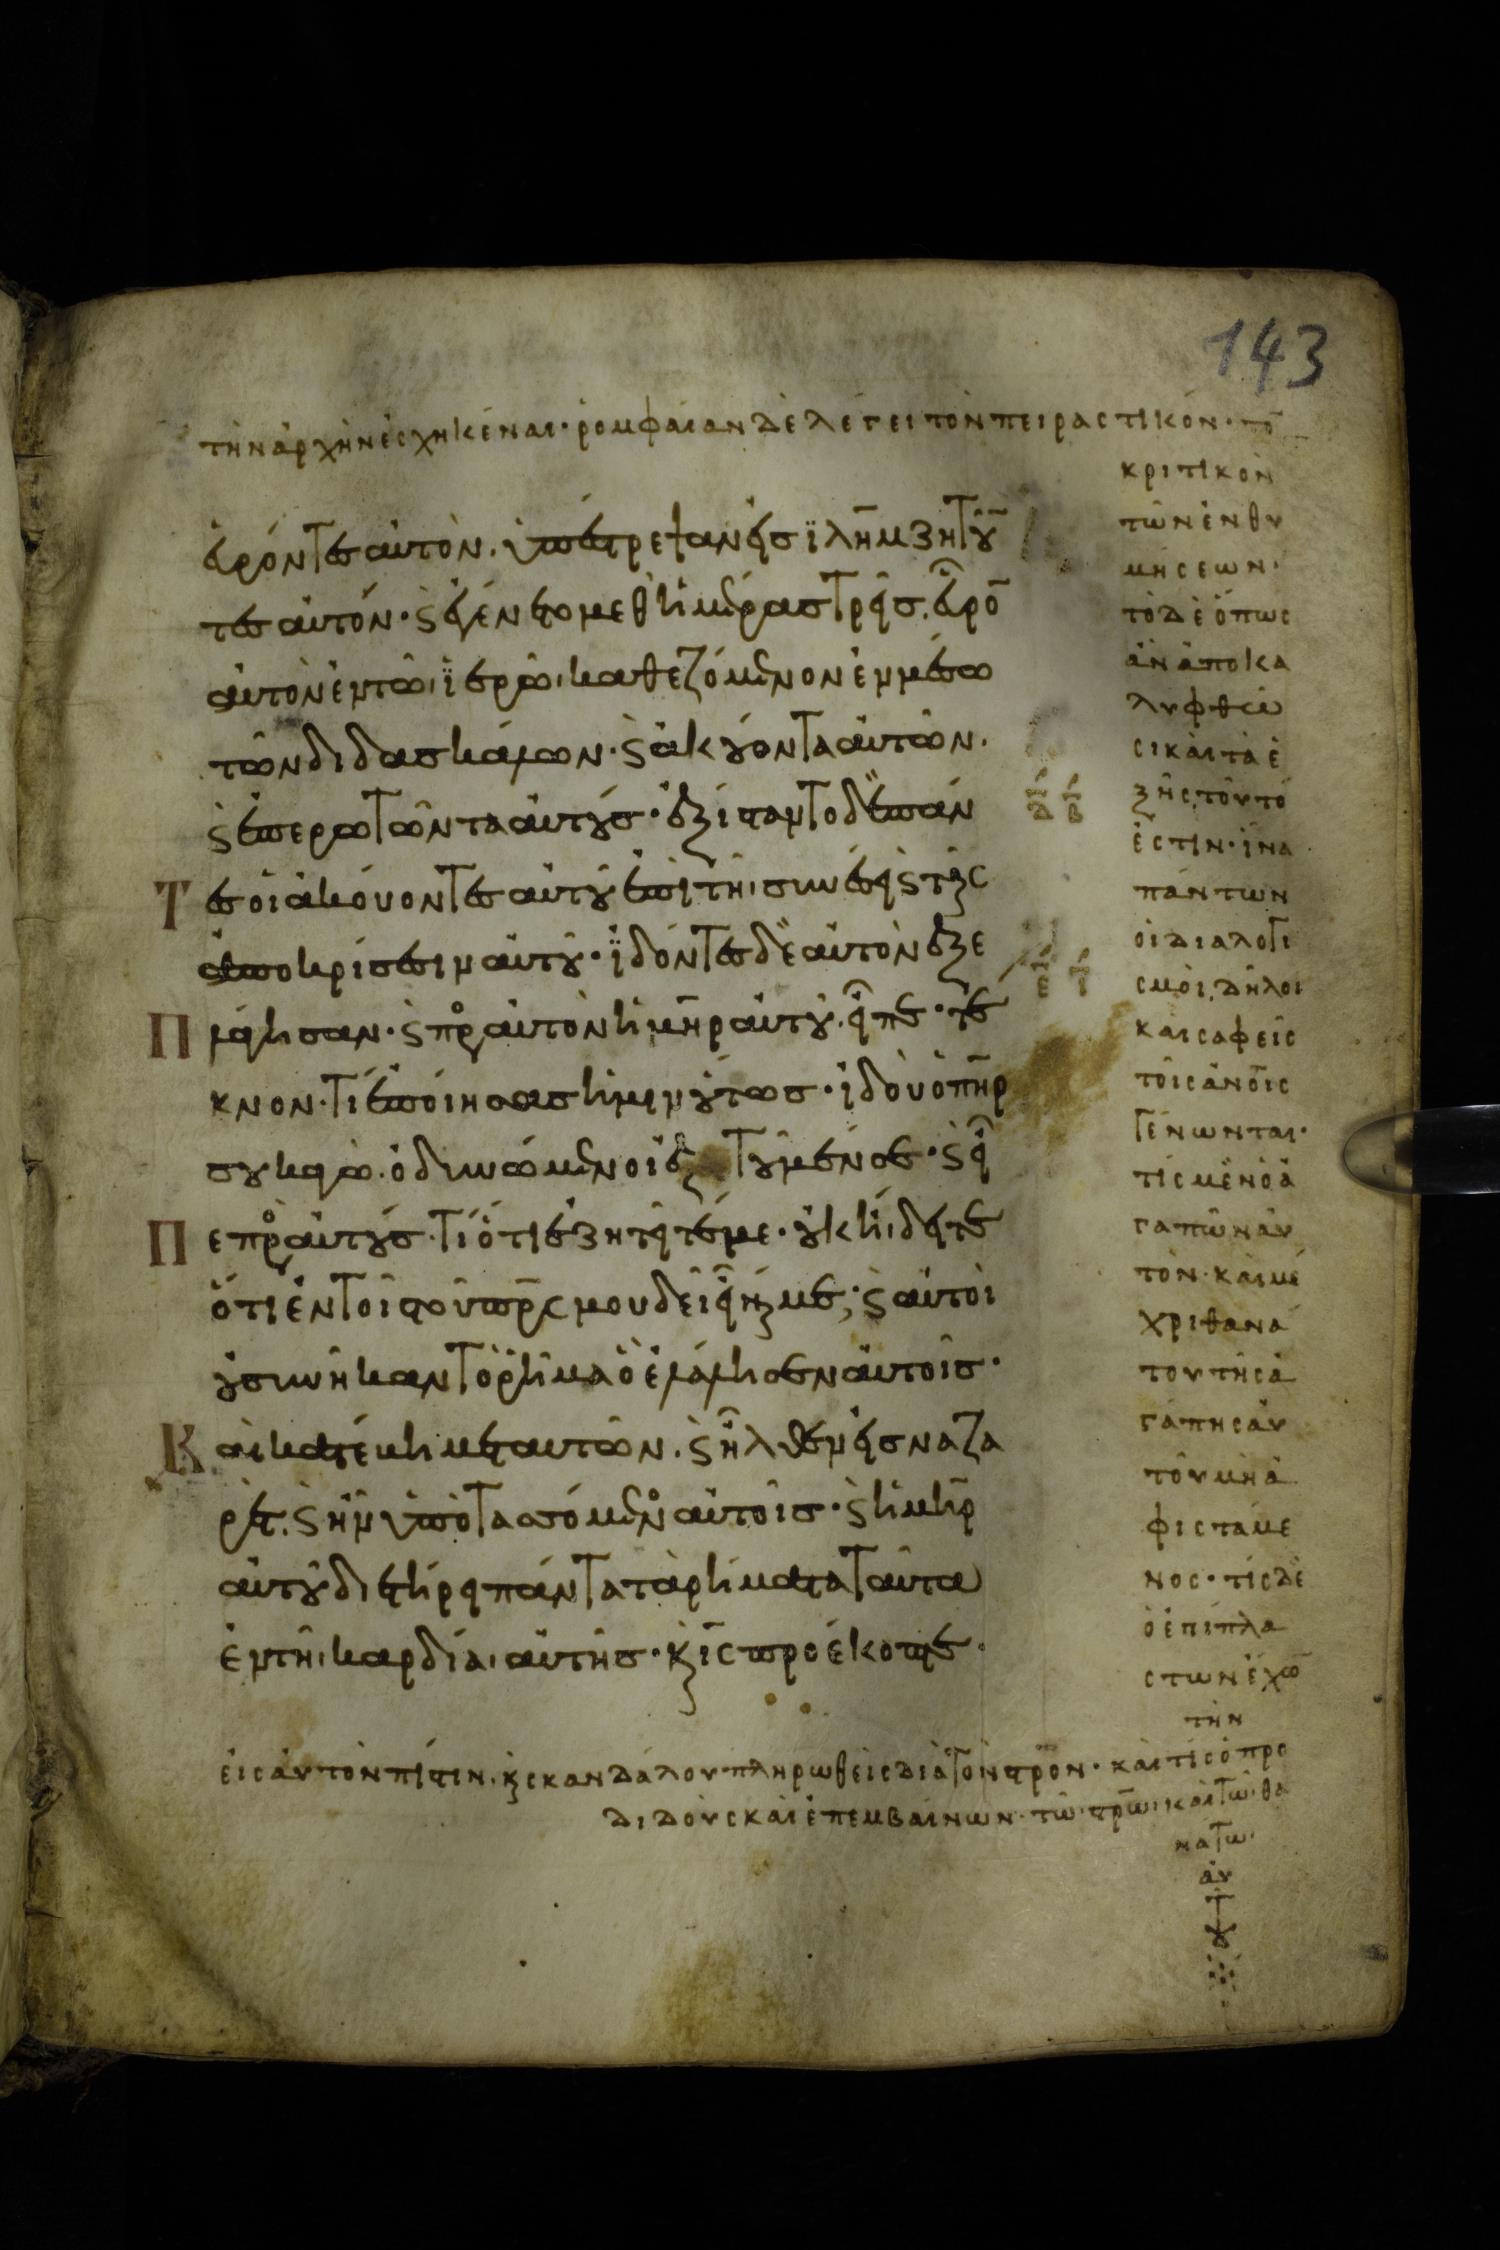 143
τὴν ἀρχὴν ἐσχηκέναι· ῥομφαίαν δὲ λέγει τὸν πειραστικόν· το̅
εὑρόντες αὐτὸν· ὑπέστρεψαν εἰς ϊλη̅μ ζητοῦ
τες αὐτόν· ϛ ἐγένετο μεθ ἡμέρας τρεῖς· εὗρο̅
αὐτὸν ἐν τῶ ϊερῶ καθεζόμενον ἐμμέσω
τῶν διδασκάλων· ϛ ἀκούοντα αὐτῶν·
ϛ ἐπερωτῶντα αὐτούς· ἐξίσταντο δὲ πάν
τες οἱ ἀκούοντες αὐτοῦ ἐπὶ τῆ συνέσει ϛ ταῖς
ἀποκρίσεσιν αὐτοῦ· ϊδόντες δὲ αὐτὸν ἐξε
Πλάγησαν· ϛ πρὸς αὐτὸν ἡ μη̅ρ αὐτοῦ εἶπε· τέ
κνον· τί ἐποίησας ἡμῖν οὕτως· ἰδοὺ ὁ πη̅ρ
σου κἀγὼ ὀδυνώμενοι ἐζητοῦμέν σε· ϛ εἶ
Πε πρὸς αὐτούς· τί ὅτι ἐζητεῖτέ με· οὐκ ἤδειτε
ὅτι ἐν τοῖς τοῦ πρ̅ς μου δεῖ εἶναί με; ϛ αὐτοὶ
οὐ συνῆκαν τὸ ῥῆμα ὃ ἐλάλησεν αὐτοῖς·
Καὶ κατέβη μετ αὐτῶν· ϛ ἦλθεν εἰς ναζα
ρέτ· ϛ ἦν ὑποτασσόμενος αὐτοῖς· ϛ ἡ μη̅ρ
αὐτοῦ διετήρει πάντα τὰ ῥήματα ταῦτα
ἐν τῆ καρδία αὐτῆς· ϗ ι̅ς προέκοπτε·
κριτικὸν
τῶν ἐνθυ
μήσεων·
τὸ δὲ ὅπως
ἂν ἀποκα
λυφθῶ
σι καὶ τὰ ἑ
ξῆς τοῦτό
ἐστιν· ἵνα
πάντων
οἱ διαλογι
σμοὶ, δῆλοι
καὶ σαφεῖς
τοῖς ἀν̅οις
γένωνται·
τίς μὲν ὁ ἀ
γαπῶν αὐ
τὸν· καὶ μέ
χρι θανά
του τῆς ἀ
γάπης αὐ
τοῦ μὴ ἀ
φιστάμε
νος· τίς δὲ
ὁ ἐπίπλα
στων ἔχω̅
τὴν
εἰς αὐτὸν πίστιν· ϗ σκανδάλου πληρωθεὶς διὰ τὸν στρ̅ον· καὶ τίς ὁ προ
διδοὺς καὶ ἐπεμβαίνων τῶ στρ̅ω· καὶ τῶ θα
νάτω
αὐ
τοῦ